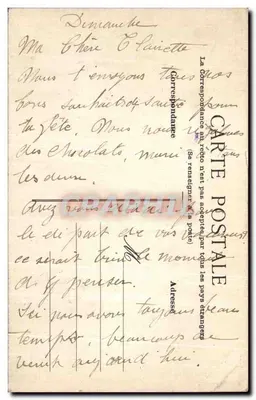 Dimanche
Ma Chère Clairette
Nous t'envoyons tous nos
bons souhaits de santé pour
ta fête. Nous nous
des chocolats, merci
les deux.
Avez vous
le départ de vos
ce serait bien le moment
d'y penser.
Ici nous avons toujours beau
temps, beaucoup de
vent aujourd'hui.
CARTE POSTALE
La Correspondance au recto n'est pas acceptée par tous les pays étrangers
(Se renseigner à la poste)
Correspondance
Adresse